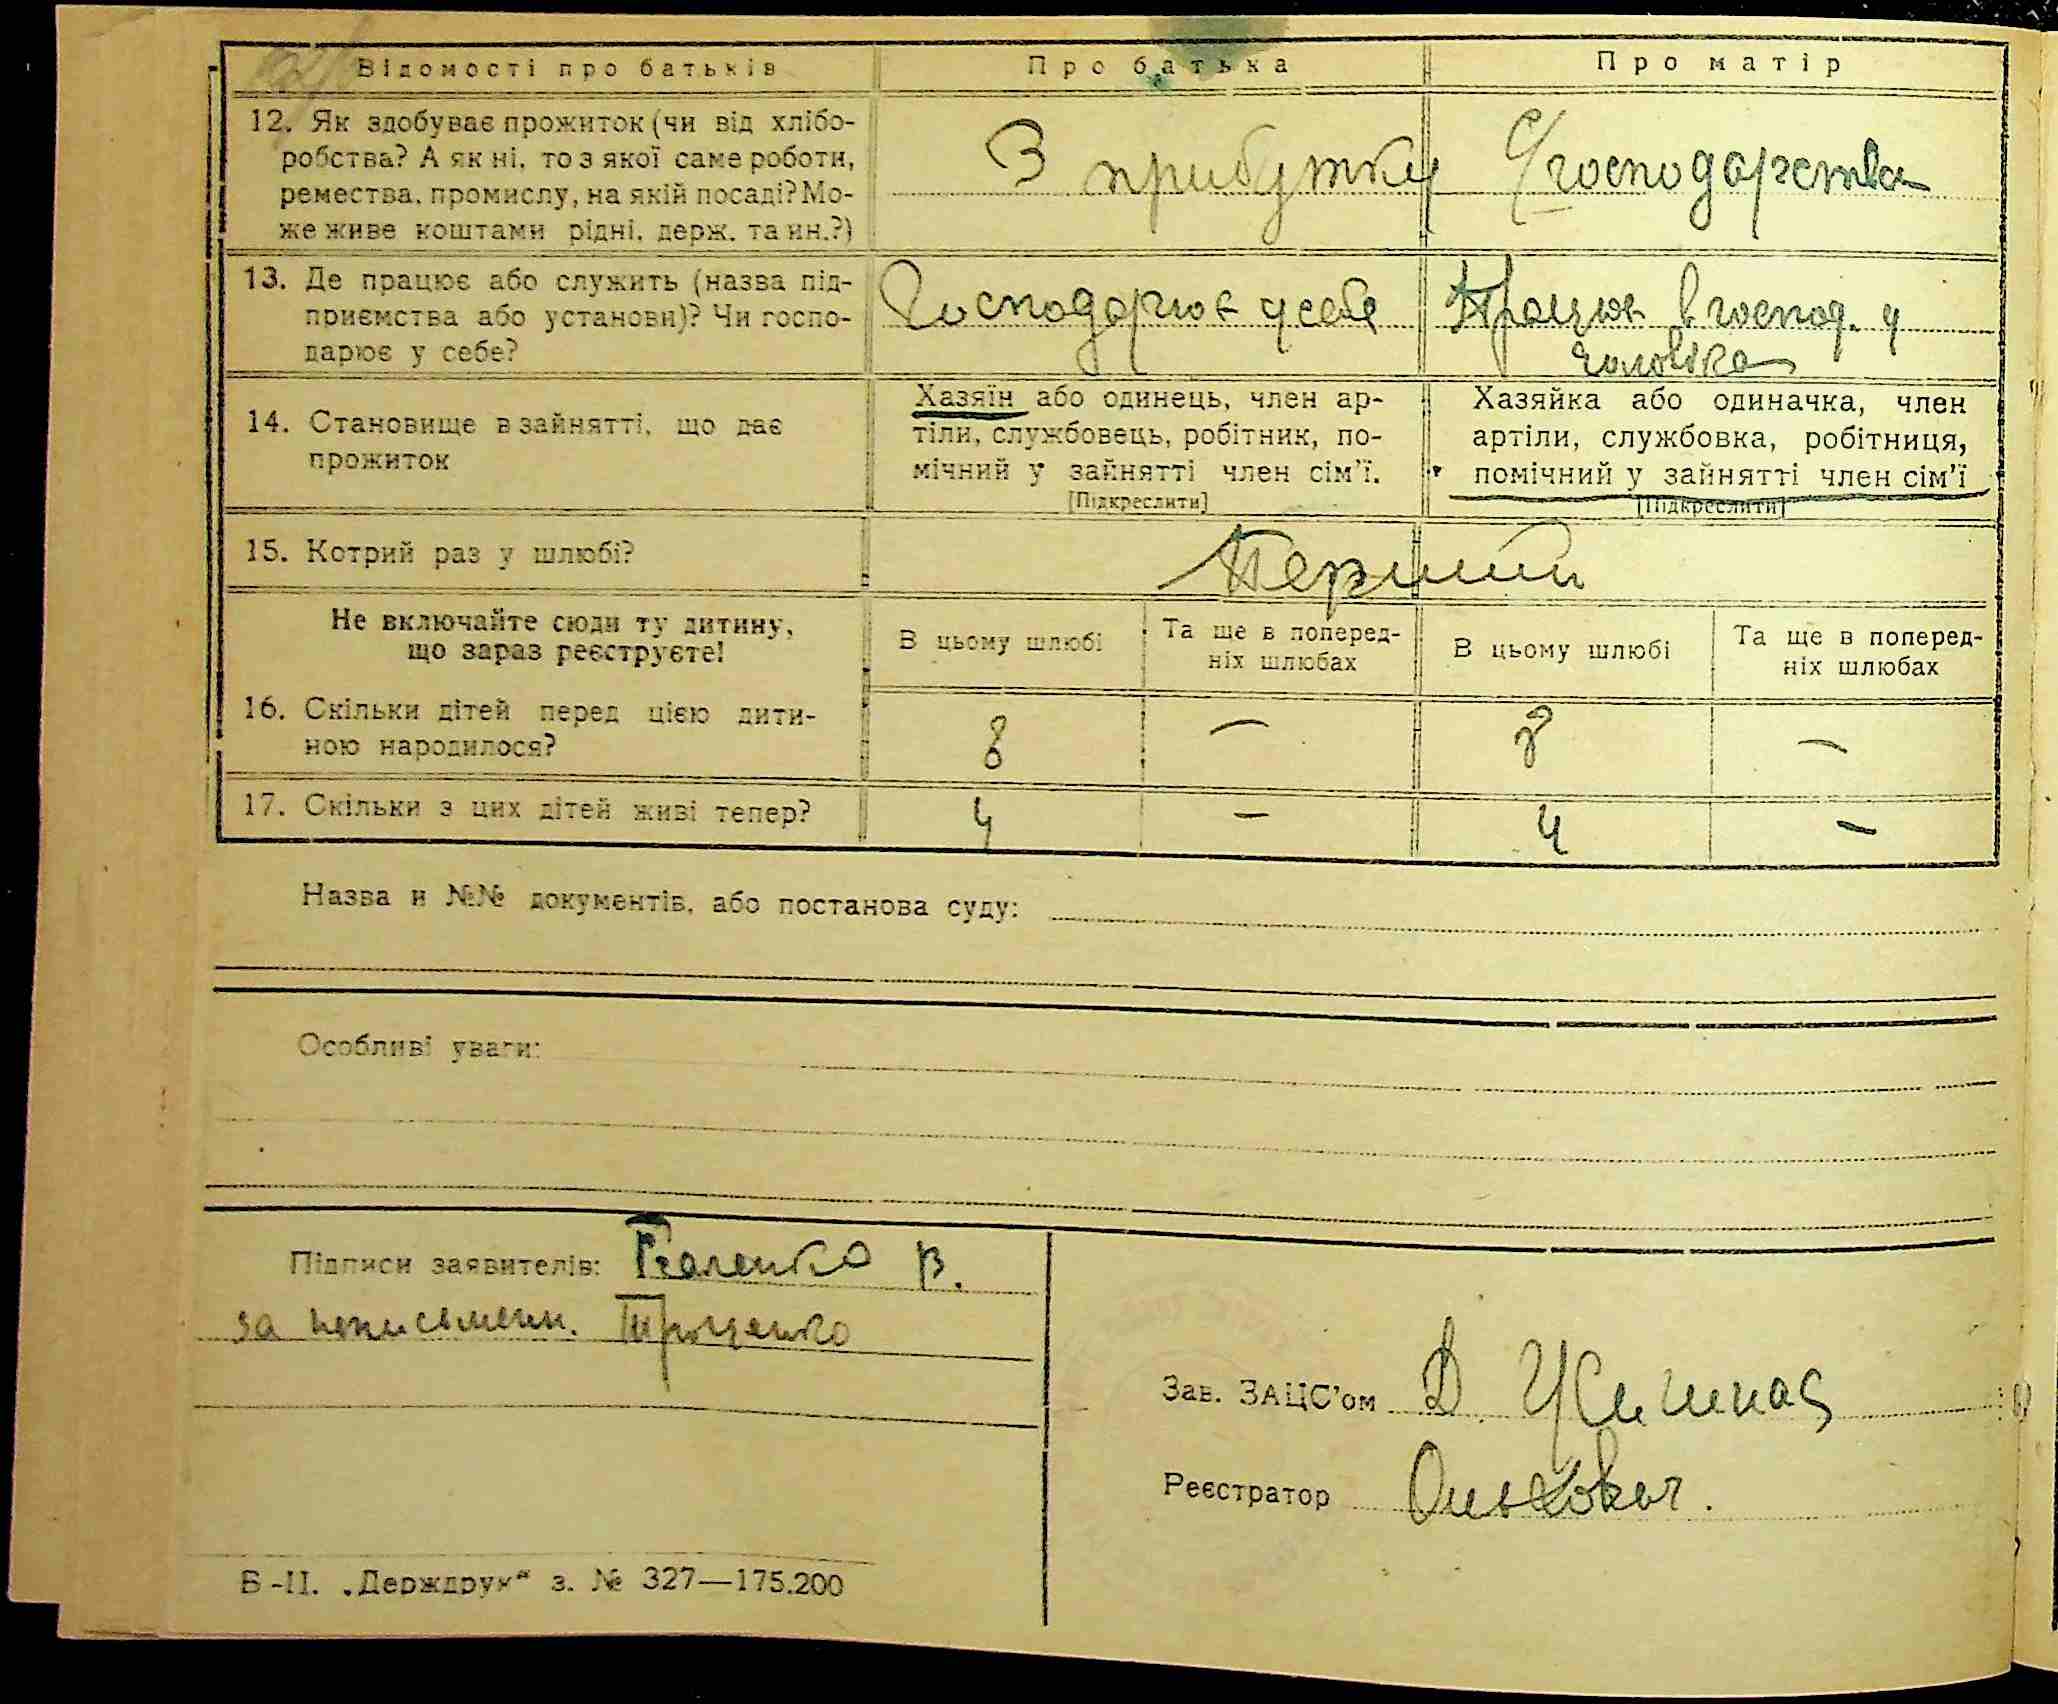 Відомості про батьків
Про батька
Про матір
12. Як здобуває прожиток (чи від хлібо-
робства? А як ні, то з якої саме роботи,
ремества, промислу, на якій посаді? Мо-
же живе коштами рідні, держ. та ин.?)
З прибутку с/господарства
13. Де працює або служить (назва під-
приємства або установи)? Чи госпо-
дарює у себе?
Господарює у себе
Працює в господ. у
чоловіка
14. Становище в зайнятті, що дає
прожиток
Хазяїн або одинець, член ар-
тіли, службовець, робітник, по-
мічний у зайнятті член сім'ї.
[Підкреслити]
Хазяйка або одиначка, член
артіли, службовка, робітниця,
помічний у зайнятті член сім'ї
[Підкреслити]
15. Котрий раз у шлюбі?
Перший
Не включайте сюди ту дитину,
що зараз реєструєте!
В цьому шлюбі
Та ще в поперед-
ніх шлюбах
В цьому шлюбі
Та ще в поперед-
ніх шлюбах
16. Скільки дітей перед цією дити-
ною народилося?
8 — 8 —
17. Скільки з цих дітей живі тепер?
4 — 4 —
Назва и №№ документів, або постанова суду:
Особливі уваги:
Підписи заявителів: В.
за неписьменн. Троценко
Зав. ЗАЦС'ом Д.
Реєстратор Ольховик.
Б-II. „Держдрук“ з. № 327—175.200